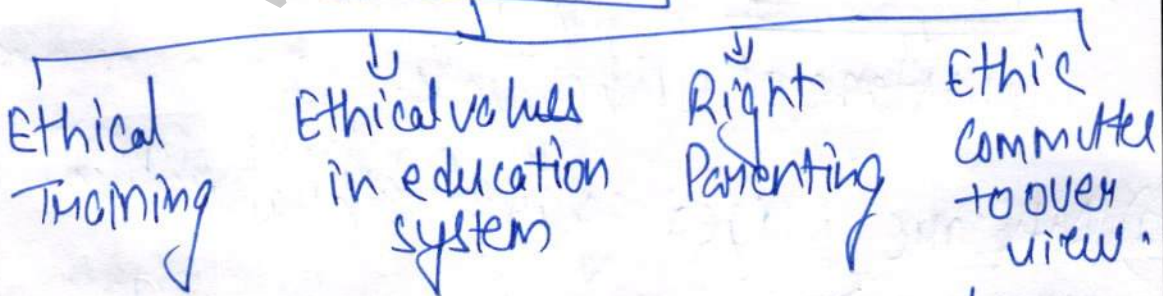 Ethical
Training
Ethical values
in education
system
Right
Parenting
Ethic
Committee
to over
view.